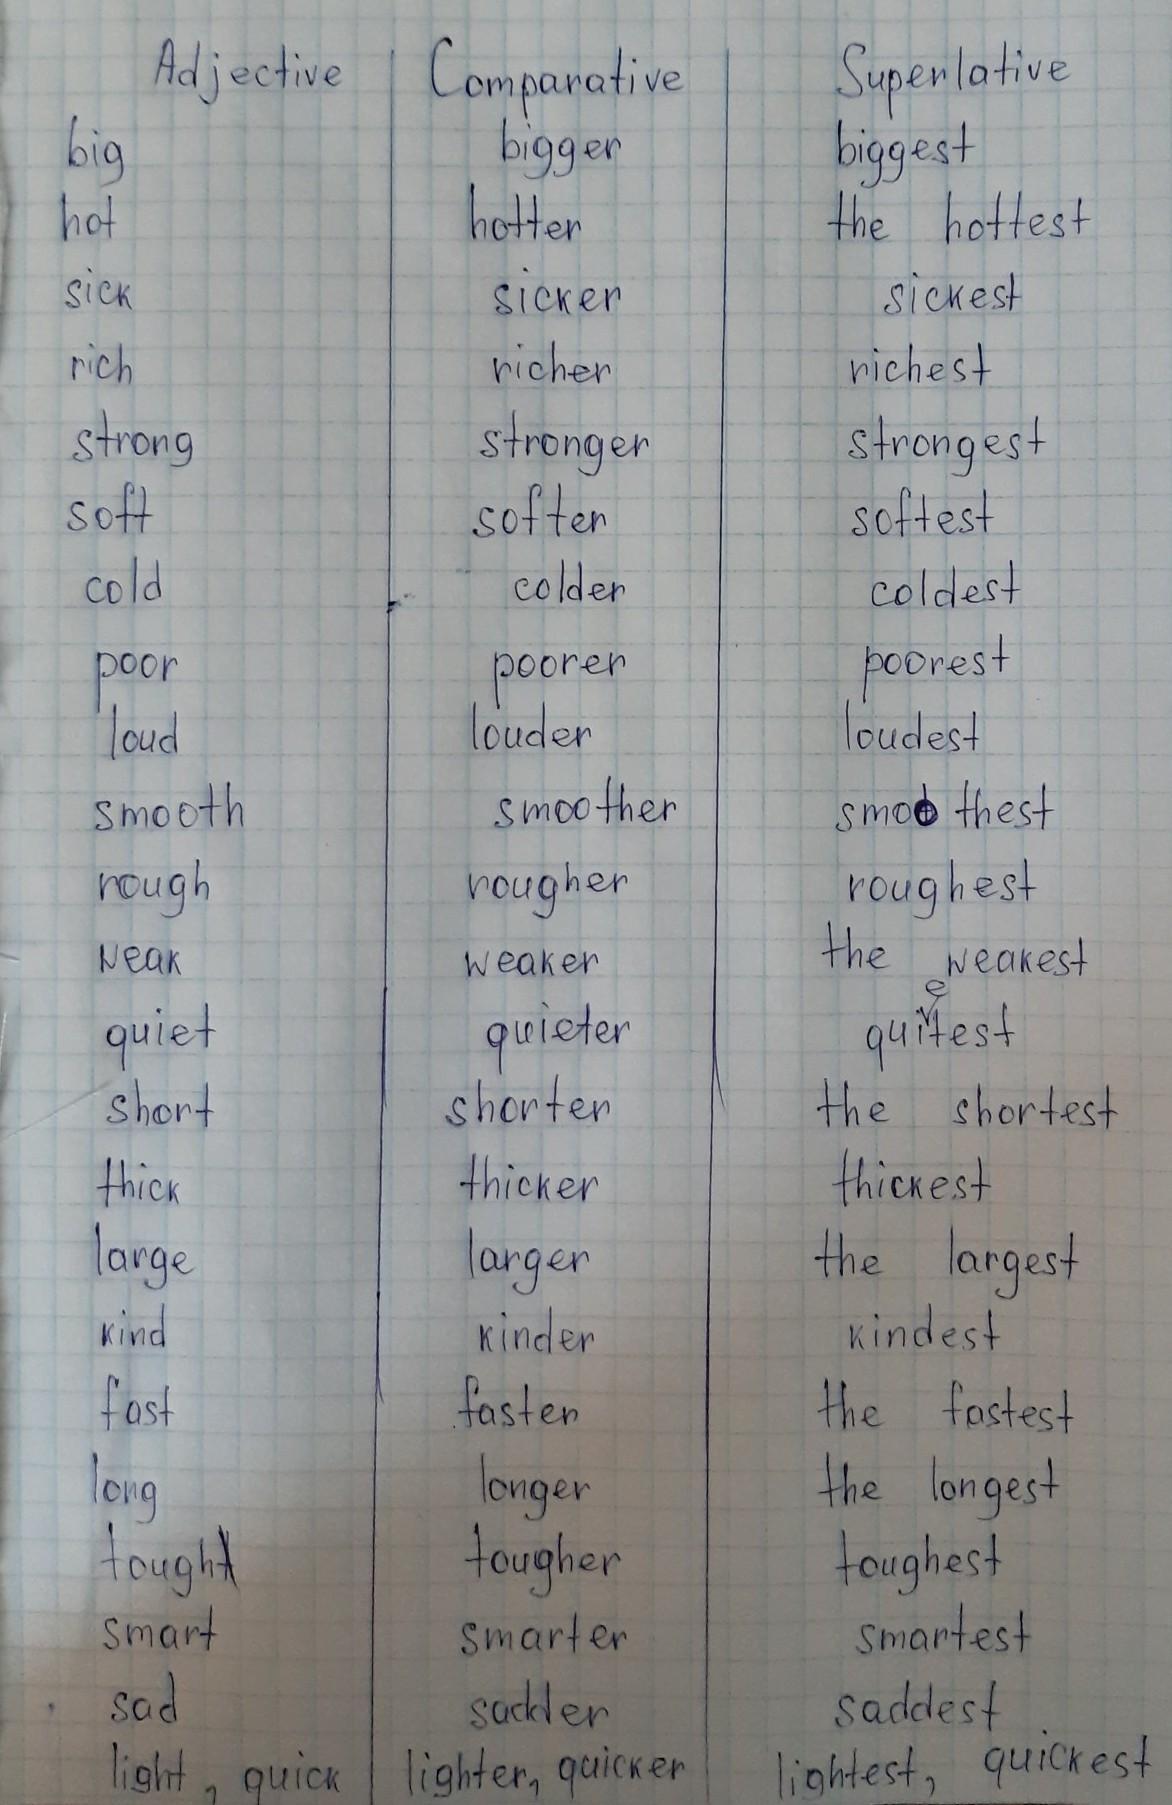 Adjective Comparative Superlative
big bigger biggest
hot hotter the hottest
sick sicker sickest
rich richer richest
strong stronger strongest
soft softer softest
cold colder coldest
poor poorer poorest
loud louder loudest
smooth smoother smoothest
rough rougher roughest
weak weaker the weakest
quiet quieter quietest
short shorter the shortest
thick thicker thickest
large larger the largest
kind kinder kindest
fast faster the fastest
long longer the longest
tough tougher toughest
smart smarter smartest
sad sadder saddest
light, quick lighter, quicker lightest, quickest